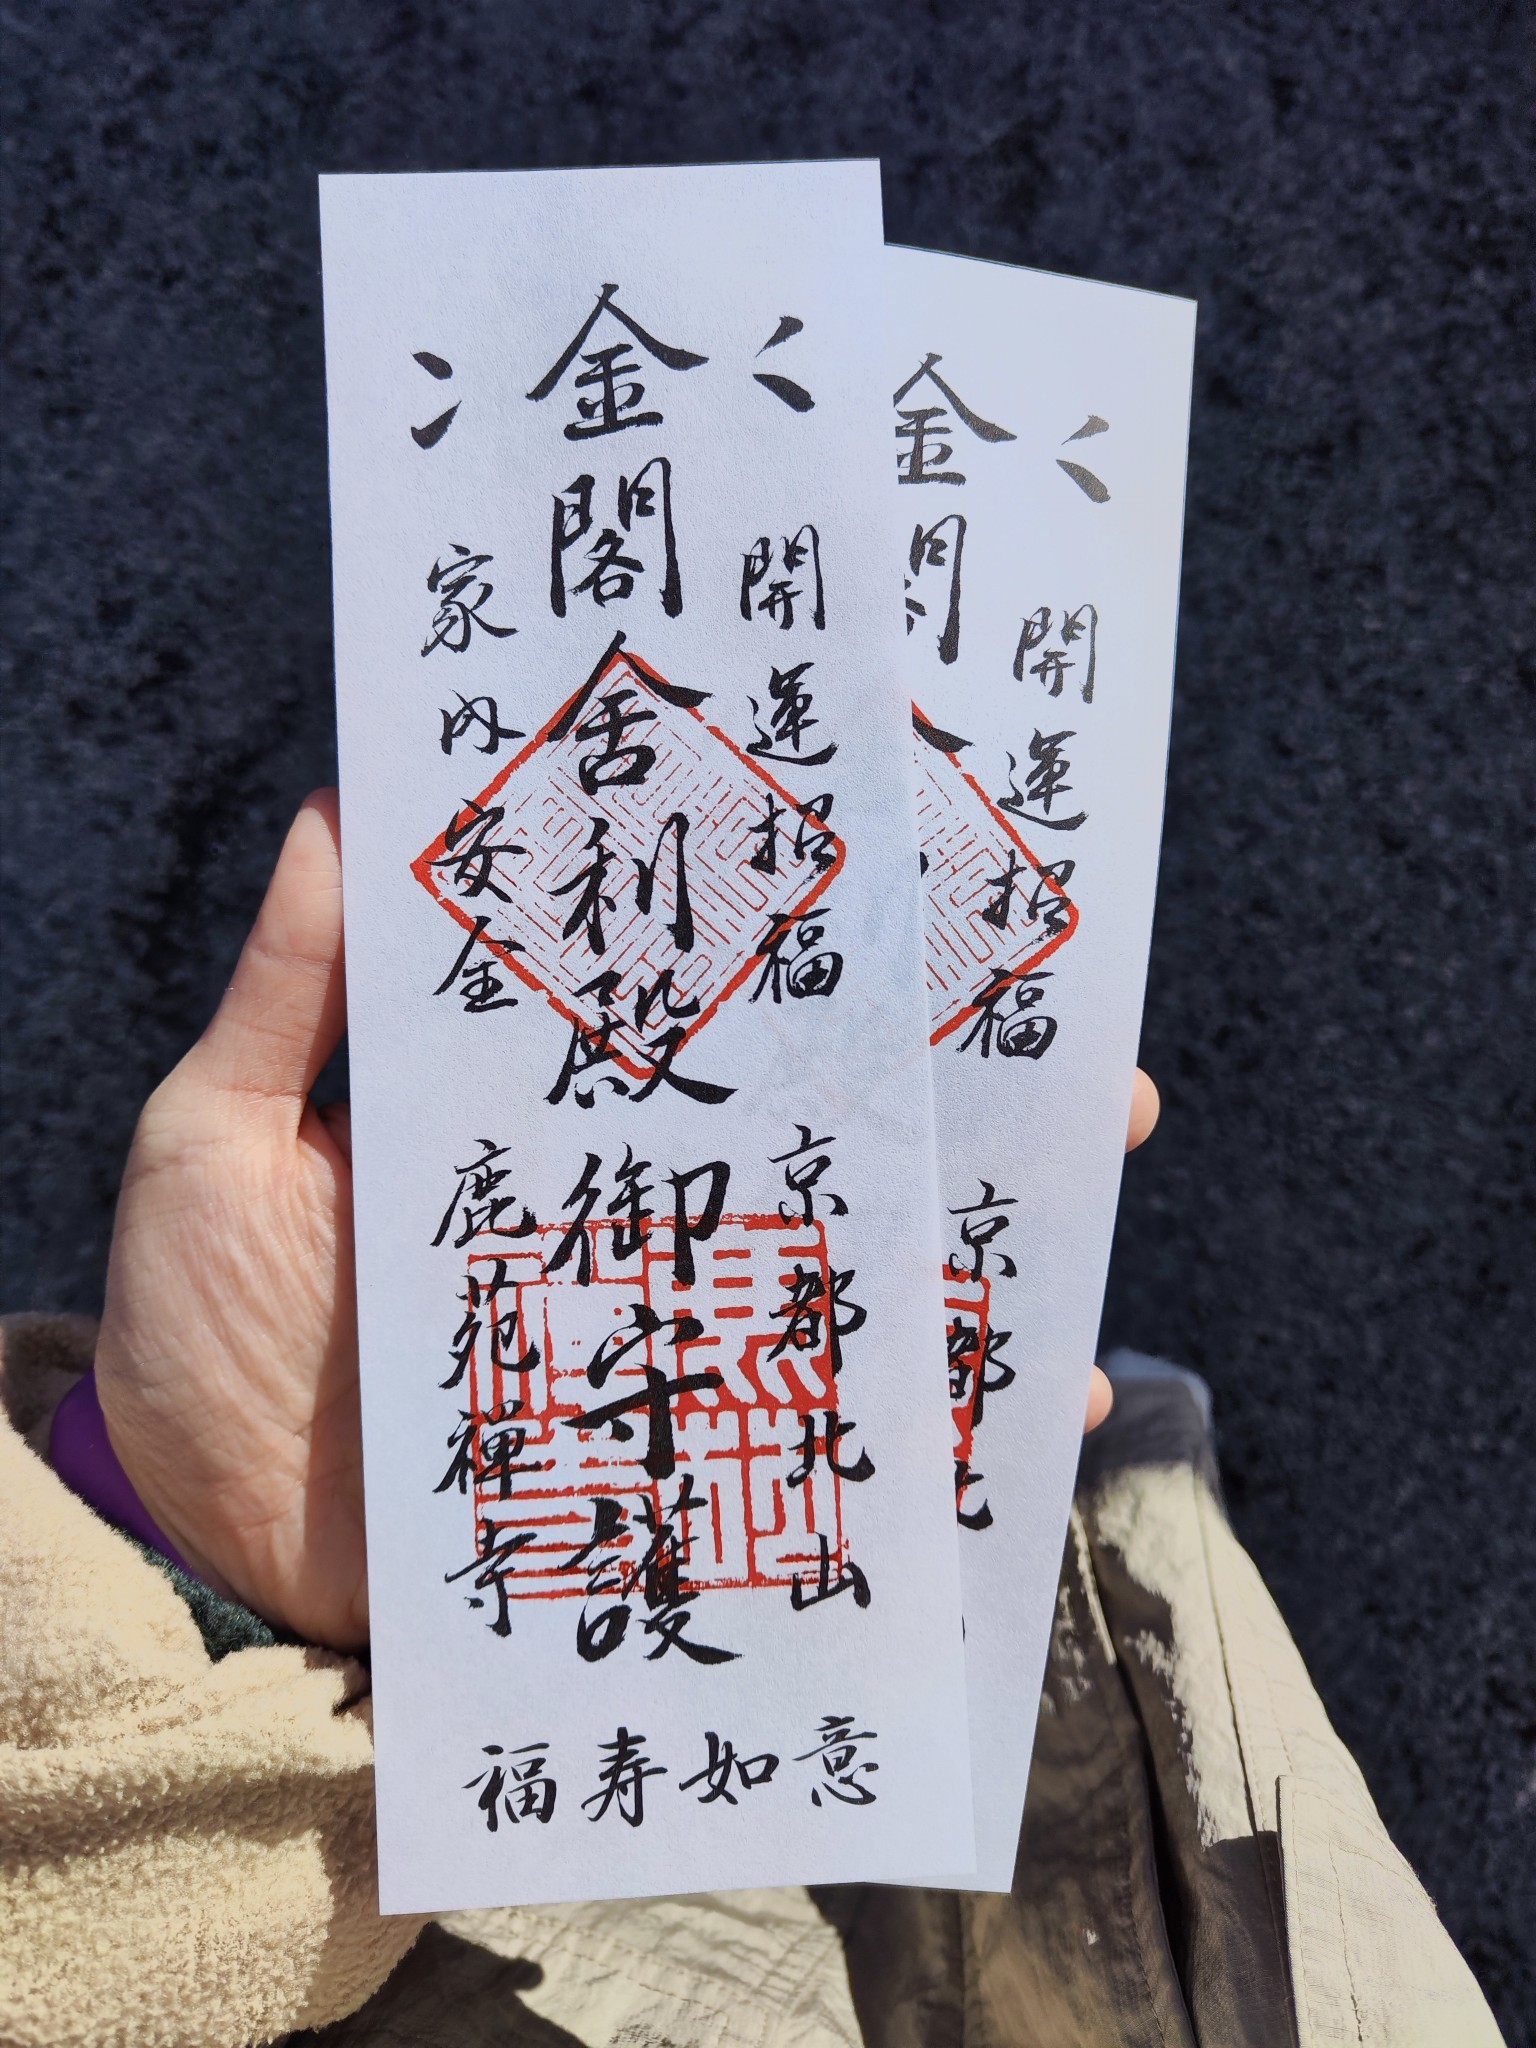 開運招福
京都北山
金閣舎利殿御守護
家内安全
鹿苑禅寺
福寿如意
金閣
開運招福
京都北